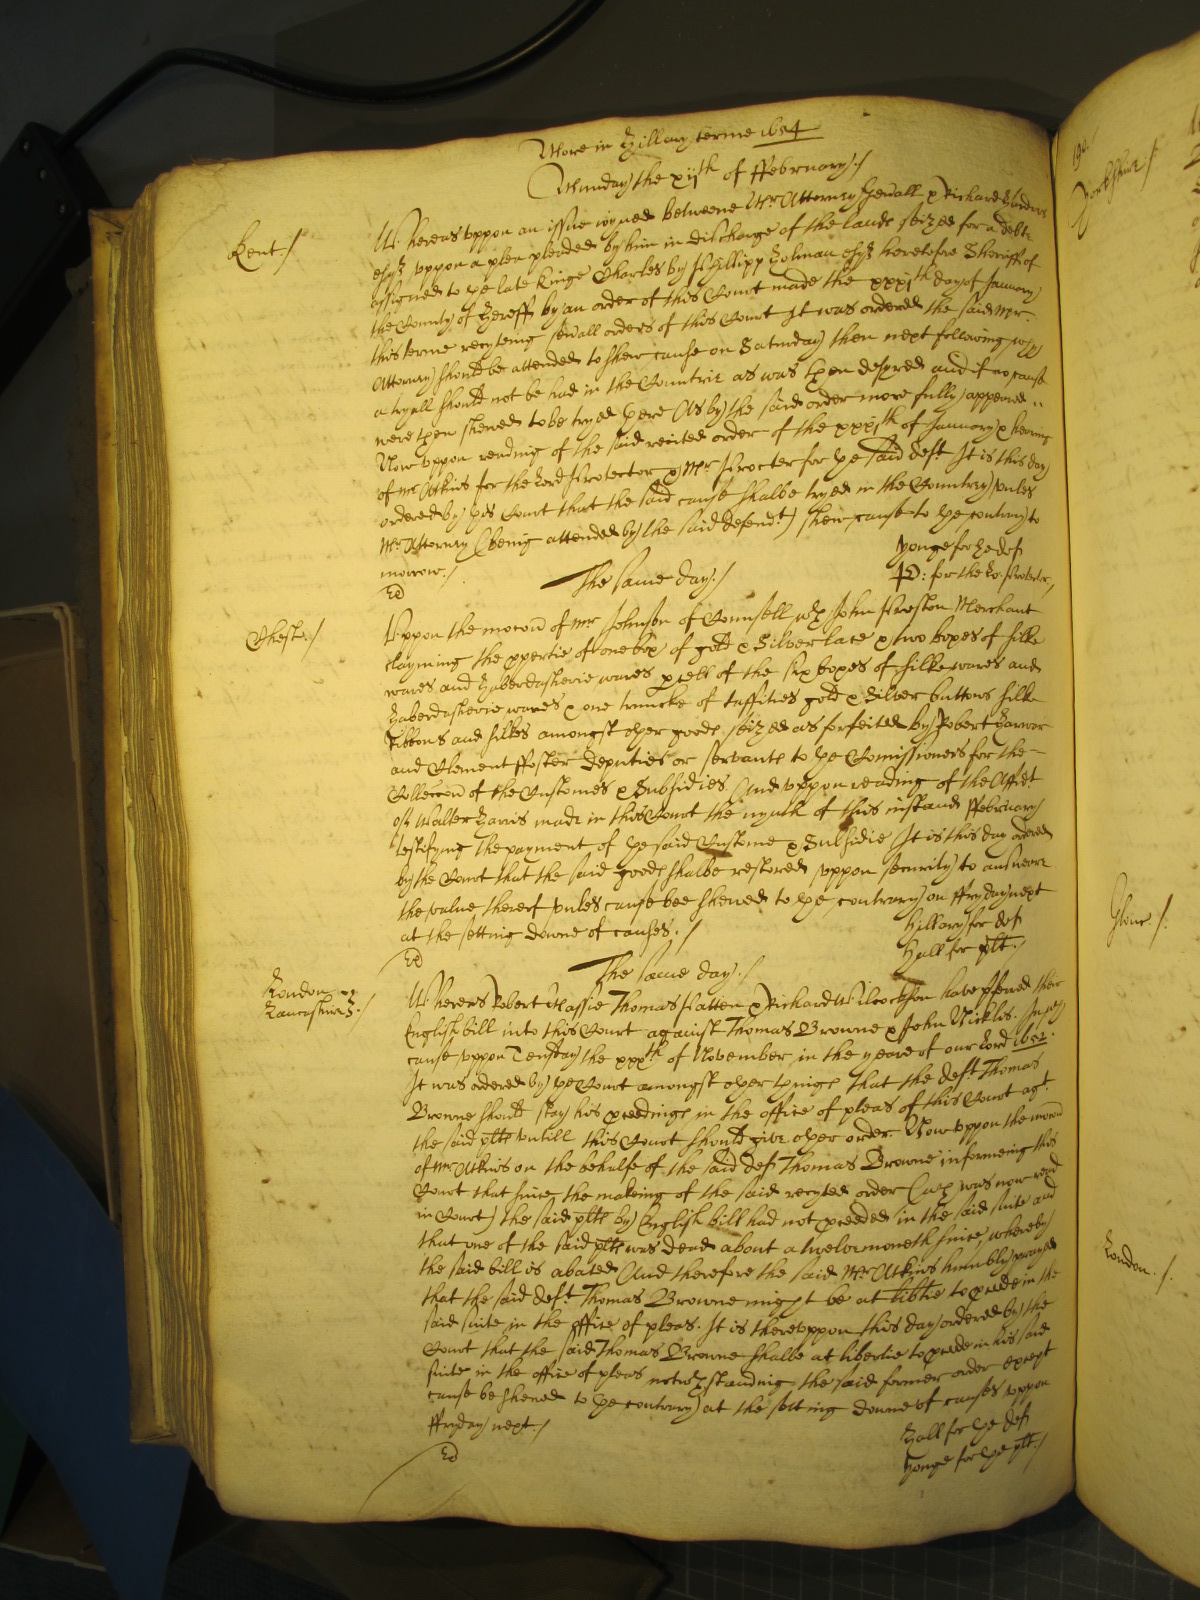 More in Hillary terme 1654
Munday the xijth of ffebruary./
Kent./
Whereas vppon an issue ioyned betweene Mr Attorney Generall & Richard
esqr vppon a plea pleaded by him in discharge of the lands seized for a debt
assigned to the late Kinge Charles by Phillipp Holman esqr heretofore Sheriff of
the County of by an order of this Court made the xxxjth day of January
this terme recyteing seuall orders of this Court It was ordered the said Mr
Attorney should be attended to shew cause on Saturday then next following why
a tryall should not be had in the Countrie as was then desyred and if no cause
were then shewed to be tryed here As by the said order more fully appeared
Now vppon reading of the said recited order of the xxxjth of January & heering
of Mr Atkins for the Lord Protector & Mr Procter for the said deft It is this day
ordered by the Court that the said cause shalbe tryed in the Countrey vnles
Mr Attorney (being attended by the said defendt) shew cause to the contrary to
morrow./
Yonge for the deft
: for the Lo: Protector/
The same day./
Chester./
Vppon the mocon of Mr Johnson of Counsell wth John Preston Merchant
clayming the ppertie of one box of gold & Silver lace & two boxes of silke
wares and haberdasherie wares pcell of the six boxes of silke wares and
haberdasherie wares & one truncke of taffities gold & Silver buttons silke
Ribbons and silkes amongst other goods seized as forfeited by Robert
and Clement ffoster deputies or servants to the Comissioners for the
Colleccon of the Customes & Subsidies. And vppon reading of the Affidt
of Walter Harris made in this Court the nynth of this instant ffebruary
testifying the payment of the said Custome & Subsidie It is this day ordered
by the Court that the said goods shalbe restored vppon security to answere
the value thereof vnles cause bee shewed to the contrary on ffryday next
at the setting downe of causes./
Hillary for deft
Hall for plt./
The same day./
London
Lancashire./
Whereas Robert Massie Thomas Patten & Richard Wilcockson have pferred their
English bill into this Court against Thomas Browne & John Nickles. In wch
cause vppon Tuesday the xxxth of November in the yeare of our Lord 1652.
It was ordered by the Court amongst other things that the deft Thomas
Browne should stay his pceedings in the office of pleas of this Court agt
the said plts vntill this Court should give other order. Now vppon the mocon
of Mr Atkins on the behalfe of the said deft Thomas Browne informeing this
Court that since the makeing of the said recyted order (wch was now read
in Court) the said plts by English bill had not pceeded in the said suite and
that one of the said plts was dead about a twelvemoneth since, whereby
the said bill is abated And therefore the said Mr Atkins humbly prayed
that the said deft Thomas Browne might be at libtie to pceede in the
said suite in the office of pleas. It is therevppon this day ordered by the
Court that the said Thomas Browne shalbe at libertie to pceede in his said
suite in the office of pleas notwthstanding the said former order except
cause be shewed to the contrary at the setting downe of causes vppon
ffryday next./
Hall for the deft
Yonge for the plt./
190
Yorkshire/.
Glouc./.
London./.